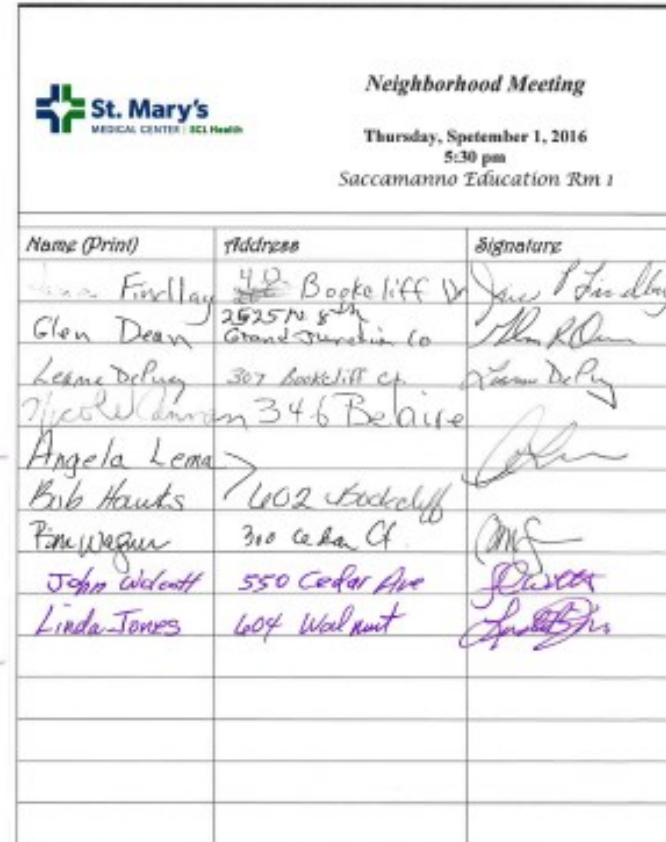 Neighborhood Meeting
St. Mary's
MEDICAL CENTER | SCL Health
Thursday, Spetember 1, 2016
5:30 pm
Saccamanno Education Rm 1
Name (Print) Address Signature
Findlay Bookcliff Dr
Glen Dean 2525 N 8th
Grand Junction Co
Leanne DePuey 307 Bookcliff Ct.
346 Belaire
Angela Lema
Bob Hawks 602 Bookcliff
Pam Wagner 310 Cedar Ct.
John Wolcott 550 Cedar Ave
Linda Jones 604 Walnut